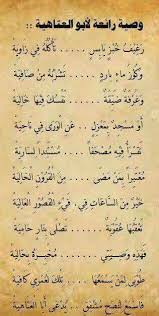 وصية رائعة لأبو العتاهية ::
رَغِيفُ خُبْزٍ يَابِسٍ ..... تَأْكُلُهُ فِي زَاوِيَةٍ
وَكُوزُ مَاءٍ بَارِدٍ ..... تَشْرَبُهُ مِنْ صَافِيَةٍ
وَغُرْفَةٌ ضَيِّقَةٌ ..... نَفْسُكَ فِيهَا خَالِيَةٌ
أَوْ مَسْجِدٌ بِمَعْزِلٍ ..... عَنِ الْوَرَى فِي نَاحِيَةٍ
تَقْرَأُ فِيهِ مُصْحَفًا ..... مُسْتَنِدًا لِسَارِيَةٍ
مُعْتَبِرًا بِمَنْ مَضَى ..... مِنَ الْقُرُونِ الْخَالِيَةِ
خَيْرٌ مِنَ السَّاعَاتِ فِي ..... فَيْءِ الْقُصُورِ الْعَالِيَةِ
تَعْقُبُهَا عُقُوبَةٌ ..... تَصْلَى بِنَارٍ حَامِيَةٍ
فَهَذِهِ وَصِيَّتِي ..... مُخْبِرَةٌ بِحَالِيَهْ
طُوبَى لِمَنْ يَسْمَعُهَا ..... تِلْكَ لَعَمْرِي كَافِيَةٌ
فَاسْمَعْ لِنُصْحِ مُشْفِقٍ ..... يُدْعَى أَبَا الْعَتَاهِيَةِ